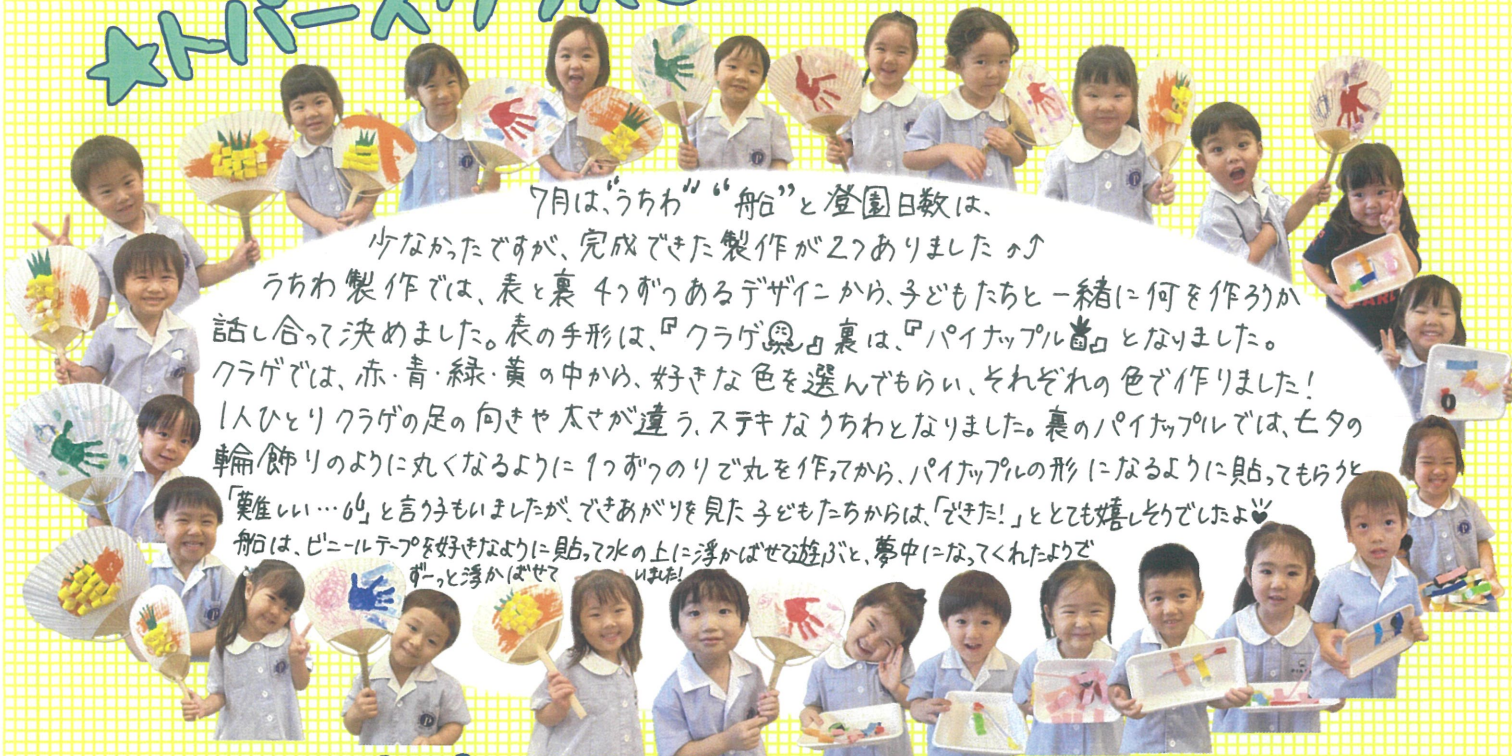 ★トパーズクラス
7月は、"うちわ" "船"と登園日数は、
少なかったですが、完成できた製作が2つありました
うちわ製作では、表と裏 4つずつあるデザインから、子どもたちと一緒に何を作ろうか
話し合って決めました。表の手形は、『クラゲ』裏は、『パイナップル』となりました。
クラゲでは、赤・青・緑・黄の中から、好きな色を選んでもらい、それぞれの色で作りました!
1人ひとりクラゲの足の向きや太さが違う、ステキなうちわとなりました。裏のパイナップルでは、七夕の
輪飾りのように丸くなるように1つずつのりで丸を作ってから、パイナップルの形になるように貼ってもらうと
「難しい…」と言う子もいましたが、できあがりを見た子どもたちからは、「できた!」ととても嬉しそうでしたよ
船は、ビニールテープを好きなように貼って水の上に浮かばせて遊ぶと、夢中になってくれたようで
ずーっと浮かばせて いました!